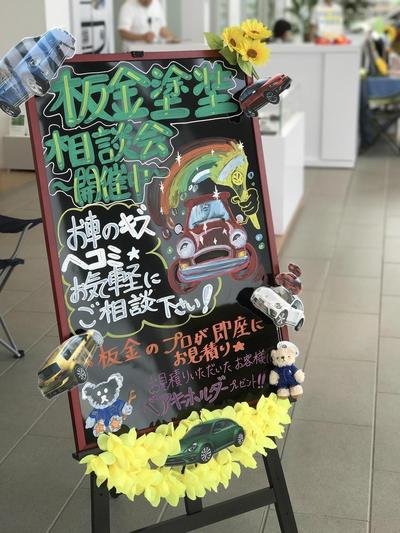 板金塗装
相談会
~開催中~
お車のキズ
ヘコミ★
お気軽に
ご相談下さい!
板金のプロが即座に
お見積り★
お見積りいただいたお客様に
ベアキーホルダープレゼント!!